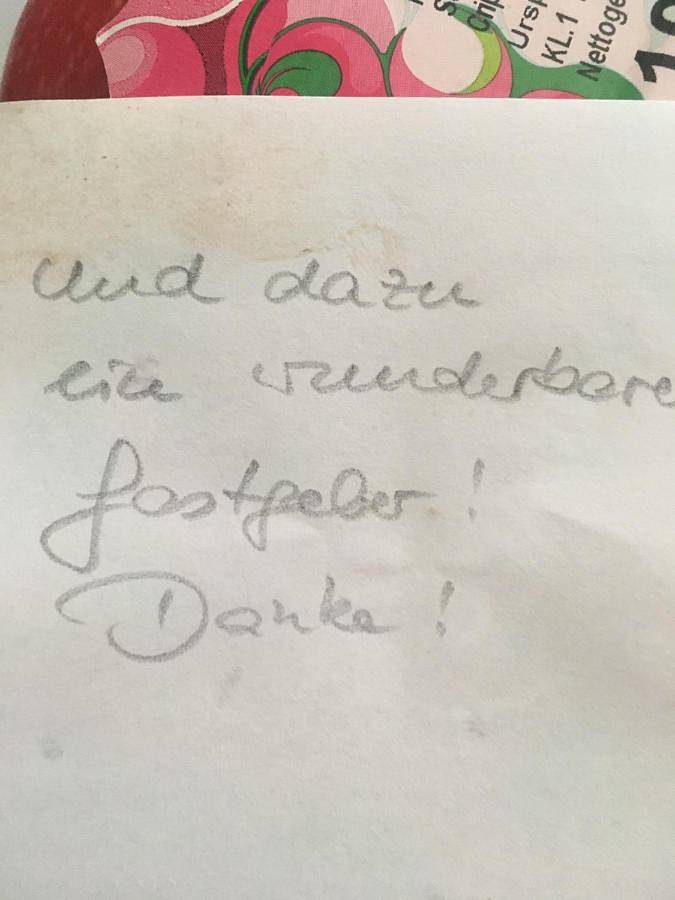 Urspr
KL.1
Nettoge
und dazu
ein wunderbarer
Gastgeber!
Danke!